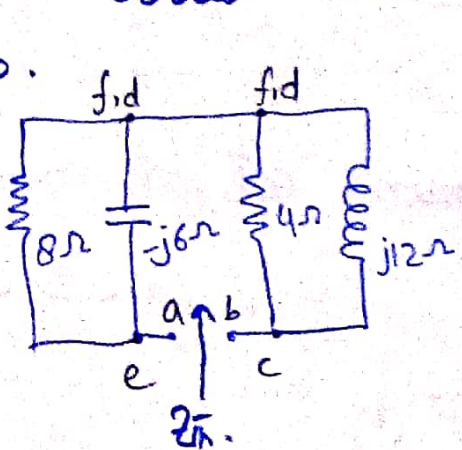 f,d f,d
8Ω -j6Ω 4Ω j12Ω
a b
e c